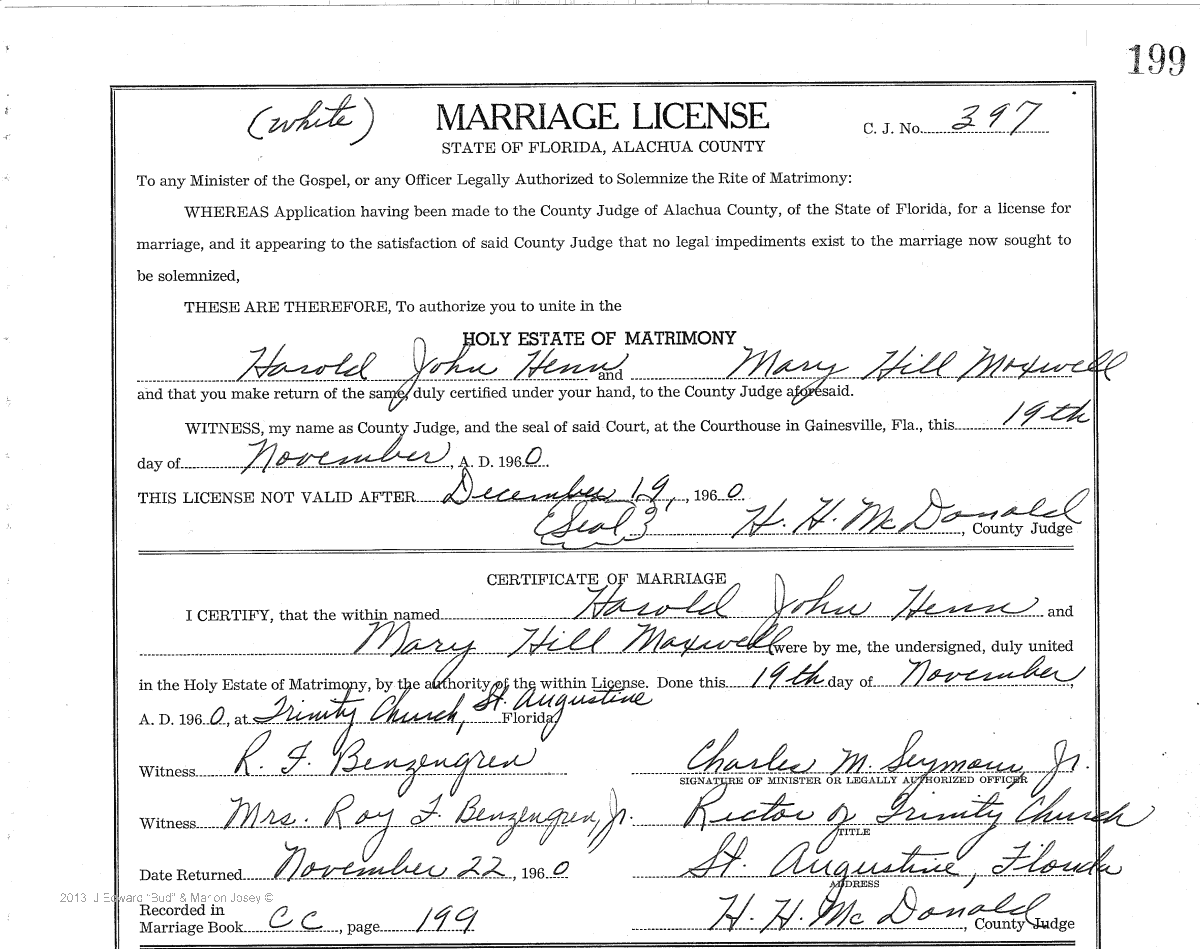 199
(white) MARRIAGE LICENSE C. J. No. 397
STATE OF FLORIDA, ALACHUA COUNTY
To any Minister of the Gospel, or any Officer Legally Authorized to Solemnize the Rite of Matrimony:
WHEREAS Application having been made to the County Judge of Alachua County, of the State of Florida, for a license for
marriage, and it appearing to the satisfaction of said County Judge that no legal impediments exist to the marriage now sought to
be solemnized,
THESE ARE THEREFORE, To authorize you to unite in the
HOLY ESTATE OF MATRIMONY
Harold John Henn and Mary Hill Maxwell
and that you make return of the same, duly certified under your hand, to the County Judge aforesaid.
WITNESS, my name as County Judge, and the seal of said Court, at the Courthouse in Gainesville, Fla., this 19th
day of November, A. D. 1960.
THIS LICENSE NOT VALID AFTER December 19, , 1960.
(Seal) H. H. McDonald, County Judge
CERTIFICATE OF MARRIAGE
I CERTIFY, that the within named Harold John Henn and
Mary Hill Maxwell were by me, the undersigned, duly united
in the Holy Estate of Matrimony, by the authority of the within License. Done this 19th day of November,
A. D. 1960, at Trinity Church, St. Augustine Florida
Witness R. F. Benzengren Charles M. Seymour, Jr.
SIGNATURE OF MINISTER OR LEGALLY AUTHORIZED OFFICER
Witness Mrs. Roy F. Benzengren, Jr. Rector of Trinity Church
TITLE
Date Returned November 22, 1960 St. Augustine, Florida
ADDRESS
2013 J Edward "Bud" & Marion Josey ©
Recorded in
Marriage Book CC, page 199 H. H. McDonald, County Judge